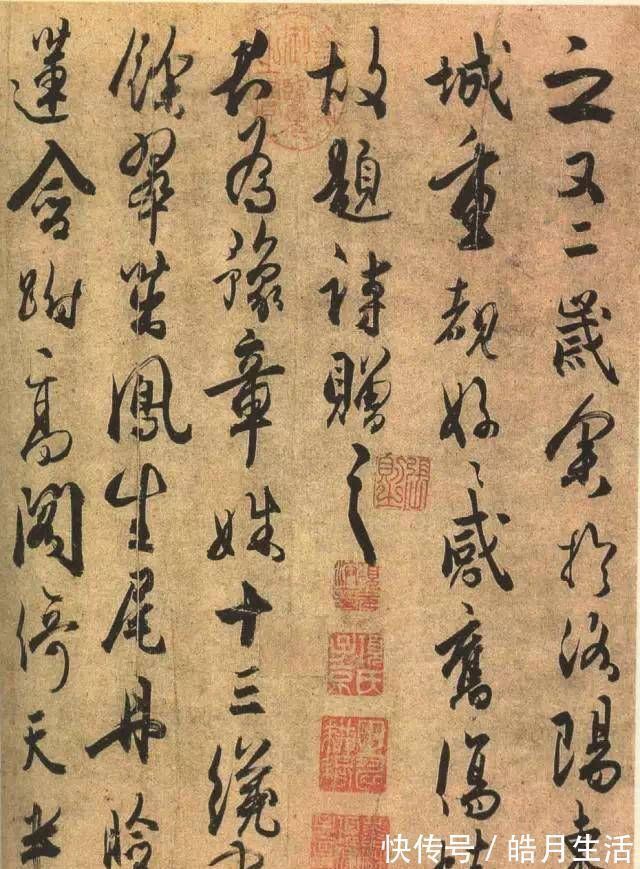 之又二歲余於洛陽東
城重覩好〻感舊傷懷
故題詩贈之
君為豫章姝十三纔有
餘翠茁鳳生尾丹臉
蓮含跗高閣倚天半
快传号/皓月生活